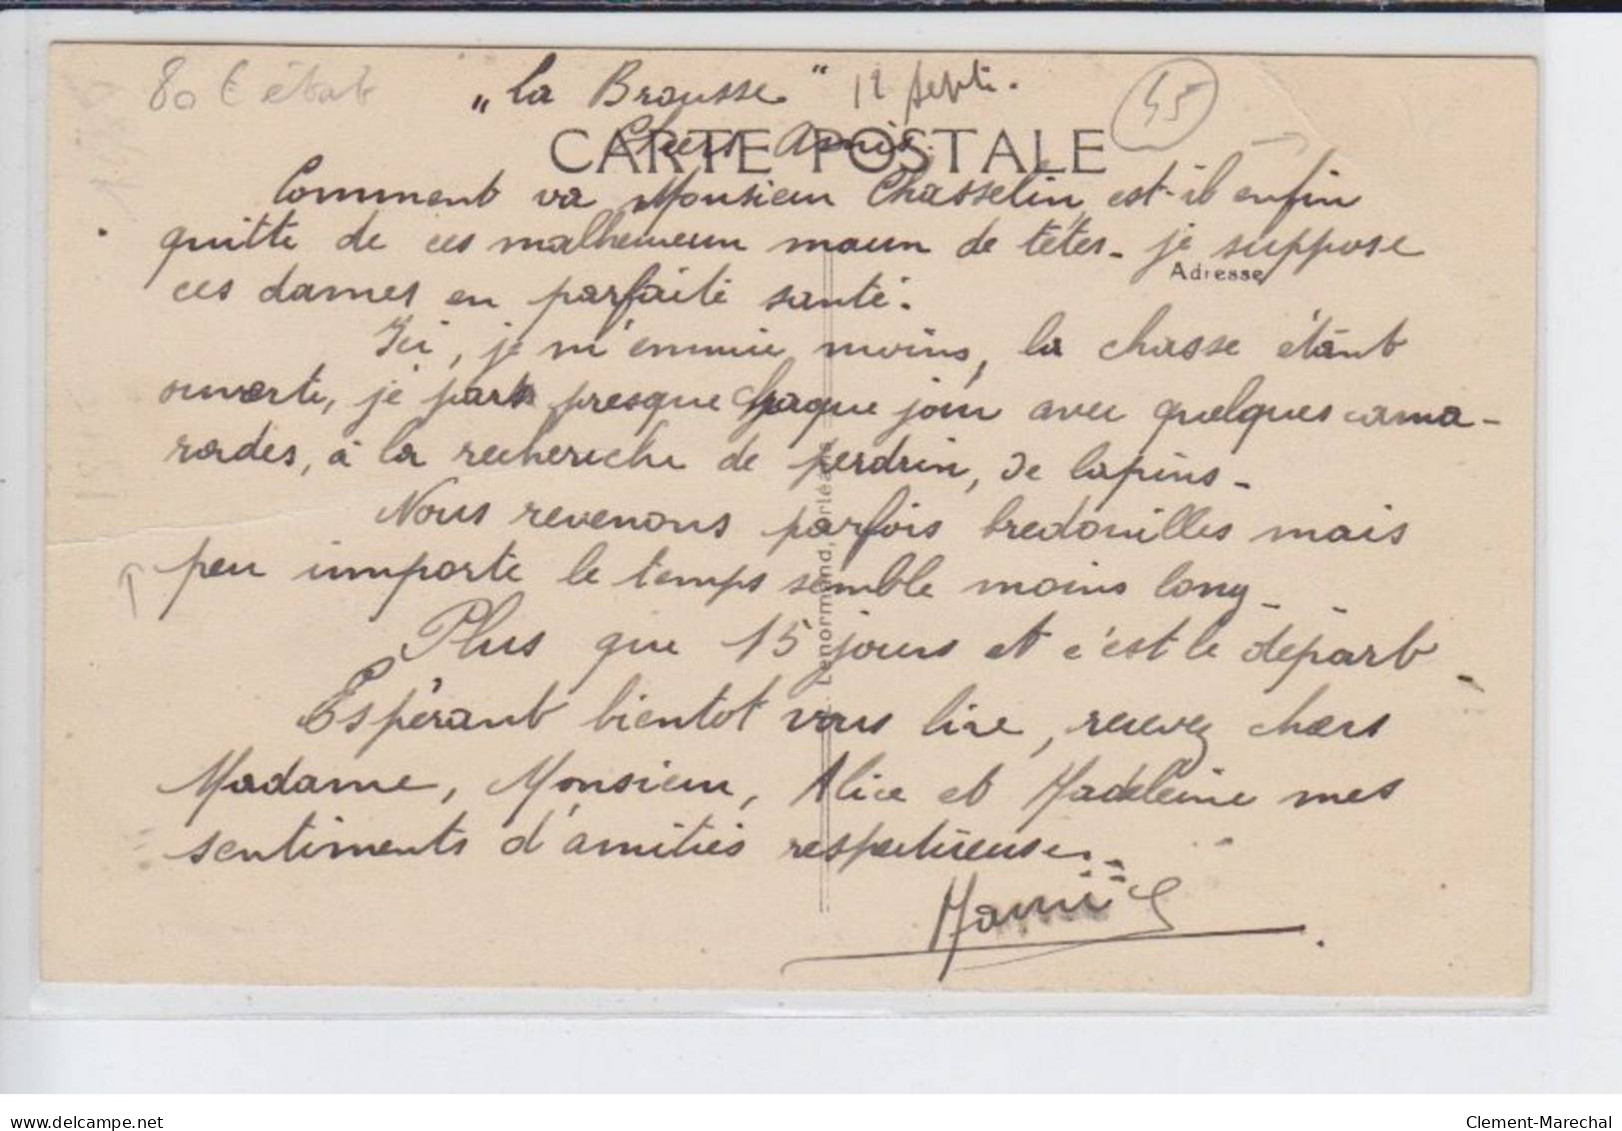 80 € état
„La Brousse" 12 Sept.
45
CARTE POSTALE
Chers Amis.
Comment va Monsieur Chasselin, est-il enfin
quitte de ces malheureux maux de têtes - je suppose
Adresse
ces dames en parfaite santé.
Ici, je m'ennuie moins, la chasse étant
ouverte, je pars presque chaque jour avec quelques cama-
rades, à la recherche de perdrix, de lapins -
Nous revenons parfois bredouilles mais
peu importe le temps semble moins long -
Plus que 15 jours et c'est le départ -
Espérant bientot vous lire, recevez chers
Madame, Monsieur, Alice et Madeleine mes
sentiments d'amitiés respectueuses -
Lenormand, Orléans
delcampe.net
Clement-Marechal